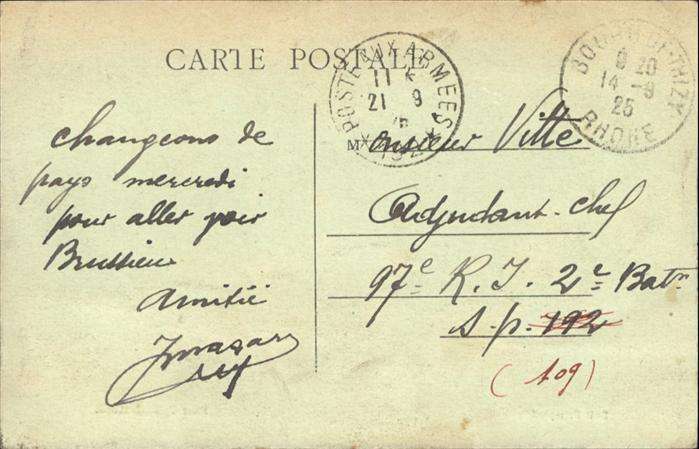 CARTE POSTALE
POSTE AUX ARMEES
11
21 - 9
25
* 192 *
BOURG-DE-THIZY
9 20
14 - 9
25
RHONE
changeons de
pays mercredi
pour aller voir
Brussieu
Amitié
Monsieur Vitte
Adjudant-chef
97e R. I. 2e Batn
S. p. 192
(109)